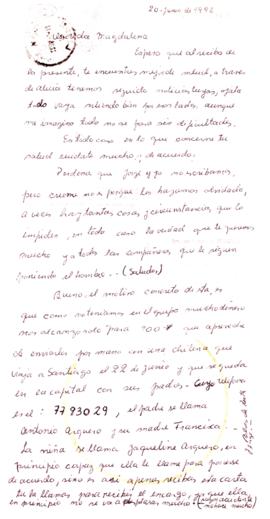 20-Junio de 1992
Querida Magdalena
Espero que al recibo de
la presente, te encuentres mejor de salud, a traves
de Alicia tenemos seguido noticias tuyas, ojala
todo vaya saliendo bien por esos lados, aunque
me imagino todo no se para sin dificultades.
En todo caso en lo que concierne tu
salud cuidate mucho de acuerdo.
Perdona que Jose y yo no escribamos,
pero creeme no es porque los hayamos olvidado,
a veces hay tantas cosas y circunstancias que lo
impiden, en todo caso la verdad que te queremos
mucho y a todos las compañeras que te siguen
poniendo el hombro... (Saludos)
Bueno, el motivo concreto de esta, es
que como no teniamos en el grupo mucho dinero
nos alcanzo solo para 
de enviarlos por mano con una chilena que
viaja a Santiago el 22 de junio y que se queda
en la capital con sus padres. Cuyo telefono
es el: 7793029, el padre se llama
Antonio Arquero y su madre Francisca.
La niña se llama Jaqueline Arquero, en
principio capaz que ella te llame para ponerse
de acuerdo, sino es asi apenas recibas esta carta
tu la llamas para recibir el encargo, ya que ella
en principio no se va a quedar mucho.